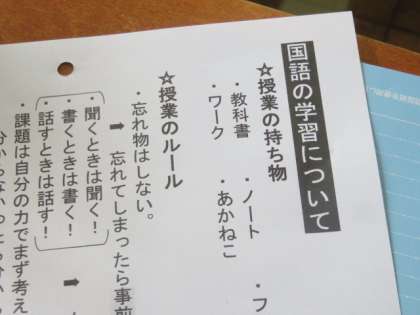 国語の学習について
☆授業の持ち物
・教科書 ・ノート ・フ
・ワーク ・あかねこ
☆授業のルール
・忘れ物はしない。
➡ 忘れてしまったら事前
・聞くときは聞く！
・書くときは書く！
・話すときは話す！
➡
・課題は自分の力でまず考え
分からなかったら分か